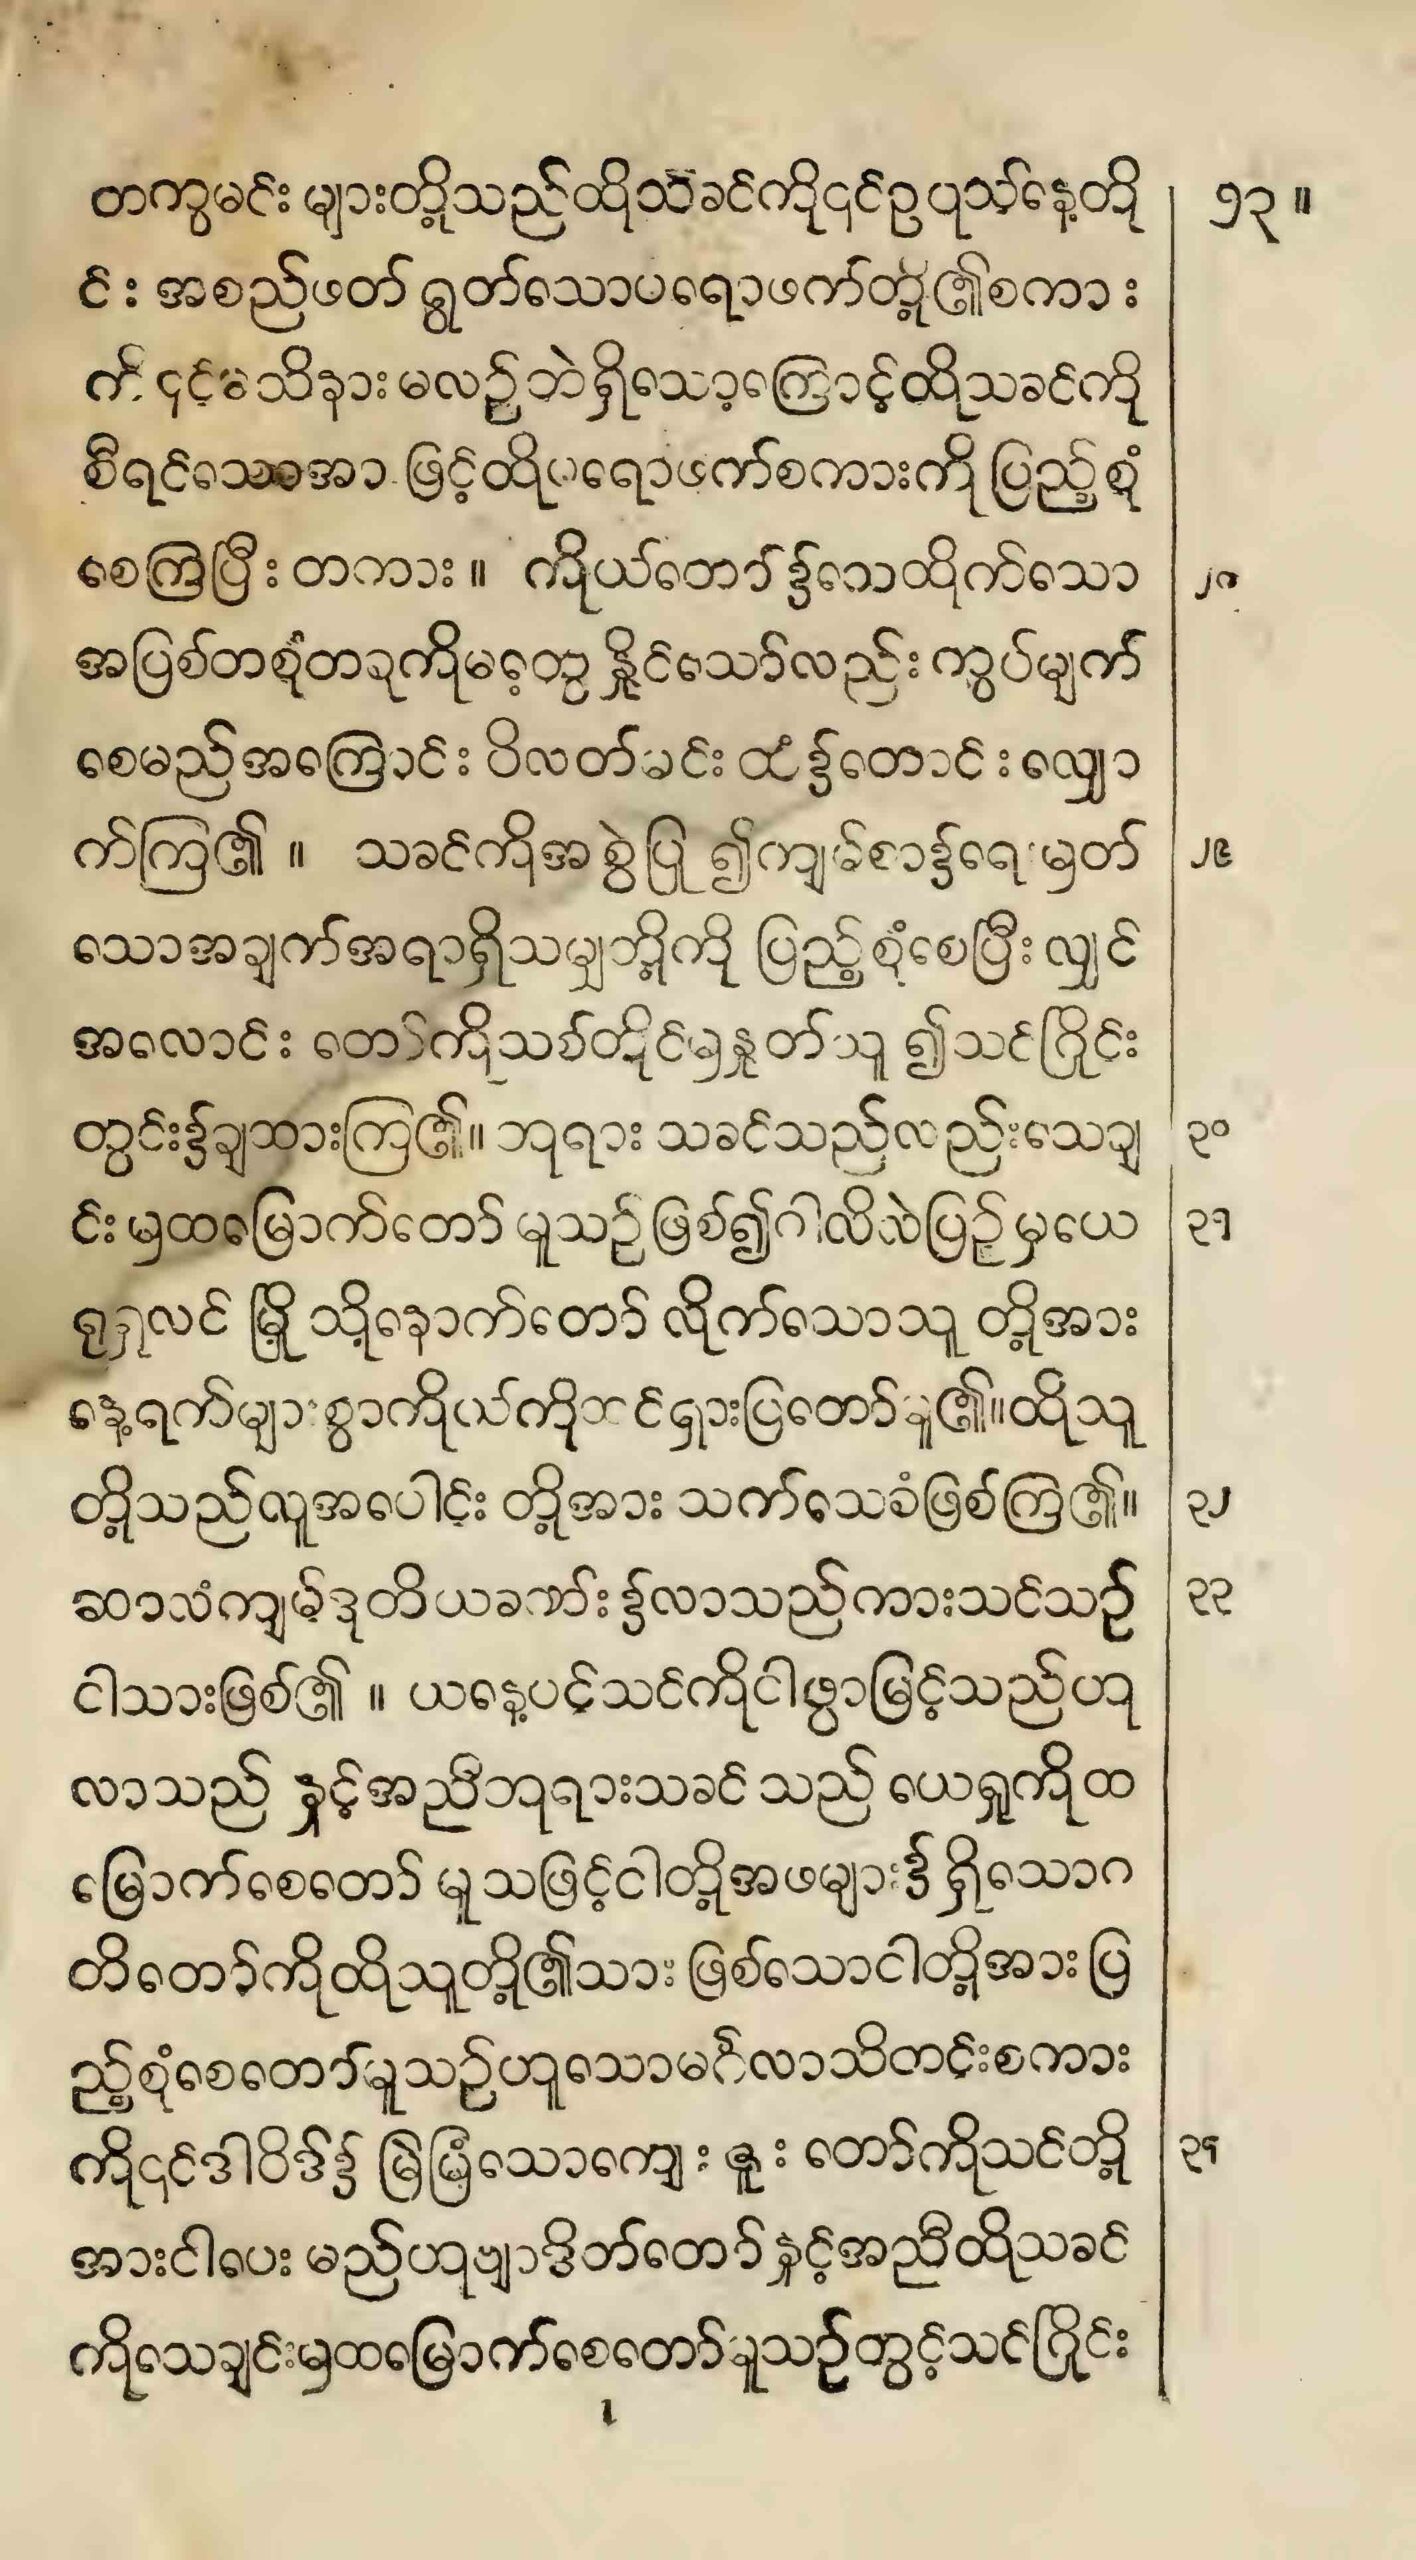 တကွမင်းများတို့သည်ထိုသခင်ကို၎င်ဥပုသ်နေ့တို ၁၃။
င်းအစည်ဖတ်ရွတ်သောပရောဖက်တို့၏စကား
ကို၎င့်မသိနားမလည်ဘဲရှိသော့ကြောင့်ထိုသခင်ကို
စီရင်သောအာဖြင့်ထိုပရောဖက်စကားကိုပြည့်စုံ
စေကြပြီးတကား။ ကိုယ်တော်၌သေထိုက်သော ၂၈
အပြစ်တစုံတခုကိုမတွေ့နိုင်သော်လည်းကွပ်မျက်
စေမည်အကြောင်းပိလတ်မင်းထံ၌တောင်းလျှော
က်ကြ၏။ သခင်ကိုအစွဲပြု၍ကျမ်စာ၌ရေးမှတ် ၂၉
သောအချက်အရာရှိသမျှတို့ကိုပြည့်စုံစေပြီးလျှင်
အလောင်းတော်ကိုသစ်တိုင်မှနှုတ်ယူ၍သင်္ဂြိုင်း
တွင်း၌ချထားကြ၏။ ဘုရားသခင်သည်လည်းသေချ ၃၀
င်းမှထမြောက်တော်မူသဉ်ဖြစ်၍ဂါလိလဲပြဉ်မှယေ ၃၁
ရုရှလင်မြို့သို့နောက်တော်လိုက်သောသူတို့အား
နေ့ရက်များစွာကိုယ်ကိုထင်ရှားပြတော်မူ၏။ထိုသူ
တို့သည်လူအပေါင်းတို့အားသက်သေခံဖြစ်ကြ၏။ ၃၂
ဆာလံကျမ့်ဒုတိယခဏ်း၌လာသည်ကားသင်သဉ် ၃၃
ငါသားဖြစ်၏။ ယနေ့ပင့်သင်ကိုငါဖွာမြင့်သည်ဟု
လာသည်နှင့်အညီဘုရားသခင်သည်ယေရှုကိုထ
မြောက်စေတော်မူသဖြင့်ငါတို့အဖများ၌ရှိသောဂ
တိတော်ကိုထိုသူတို့၏သားဖြစ်သောငါတို့အားပြ
ည့်စုံစေတော်မူသဉ်ဟူသောမင်္ဂလာသိတင်းစကား
ကို၎င်ဒါဝိဒ်၌မြဲမြံသောကျေးဇူးတော်ကိုသင်တို့ ၃၄
အားငါပေးမည်ဟုဗျာဒိတ်တော်နှင့်အညီထိုသခင်
ကိုသေချင်းမှထမြောက်စေတော်မူသဉ်တွင့်သင်္ဂြိုင်း